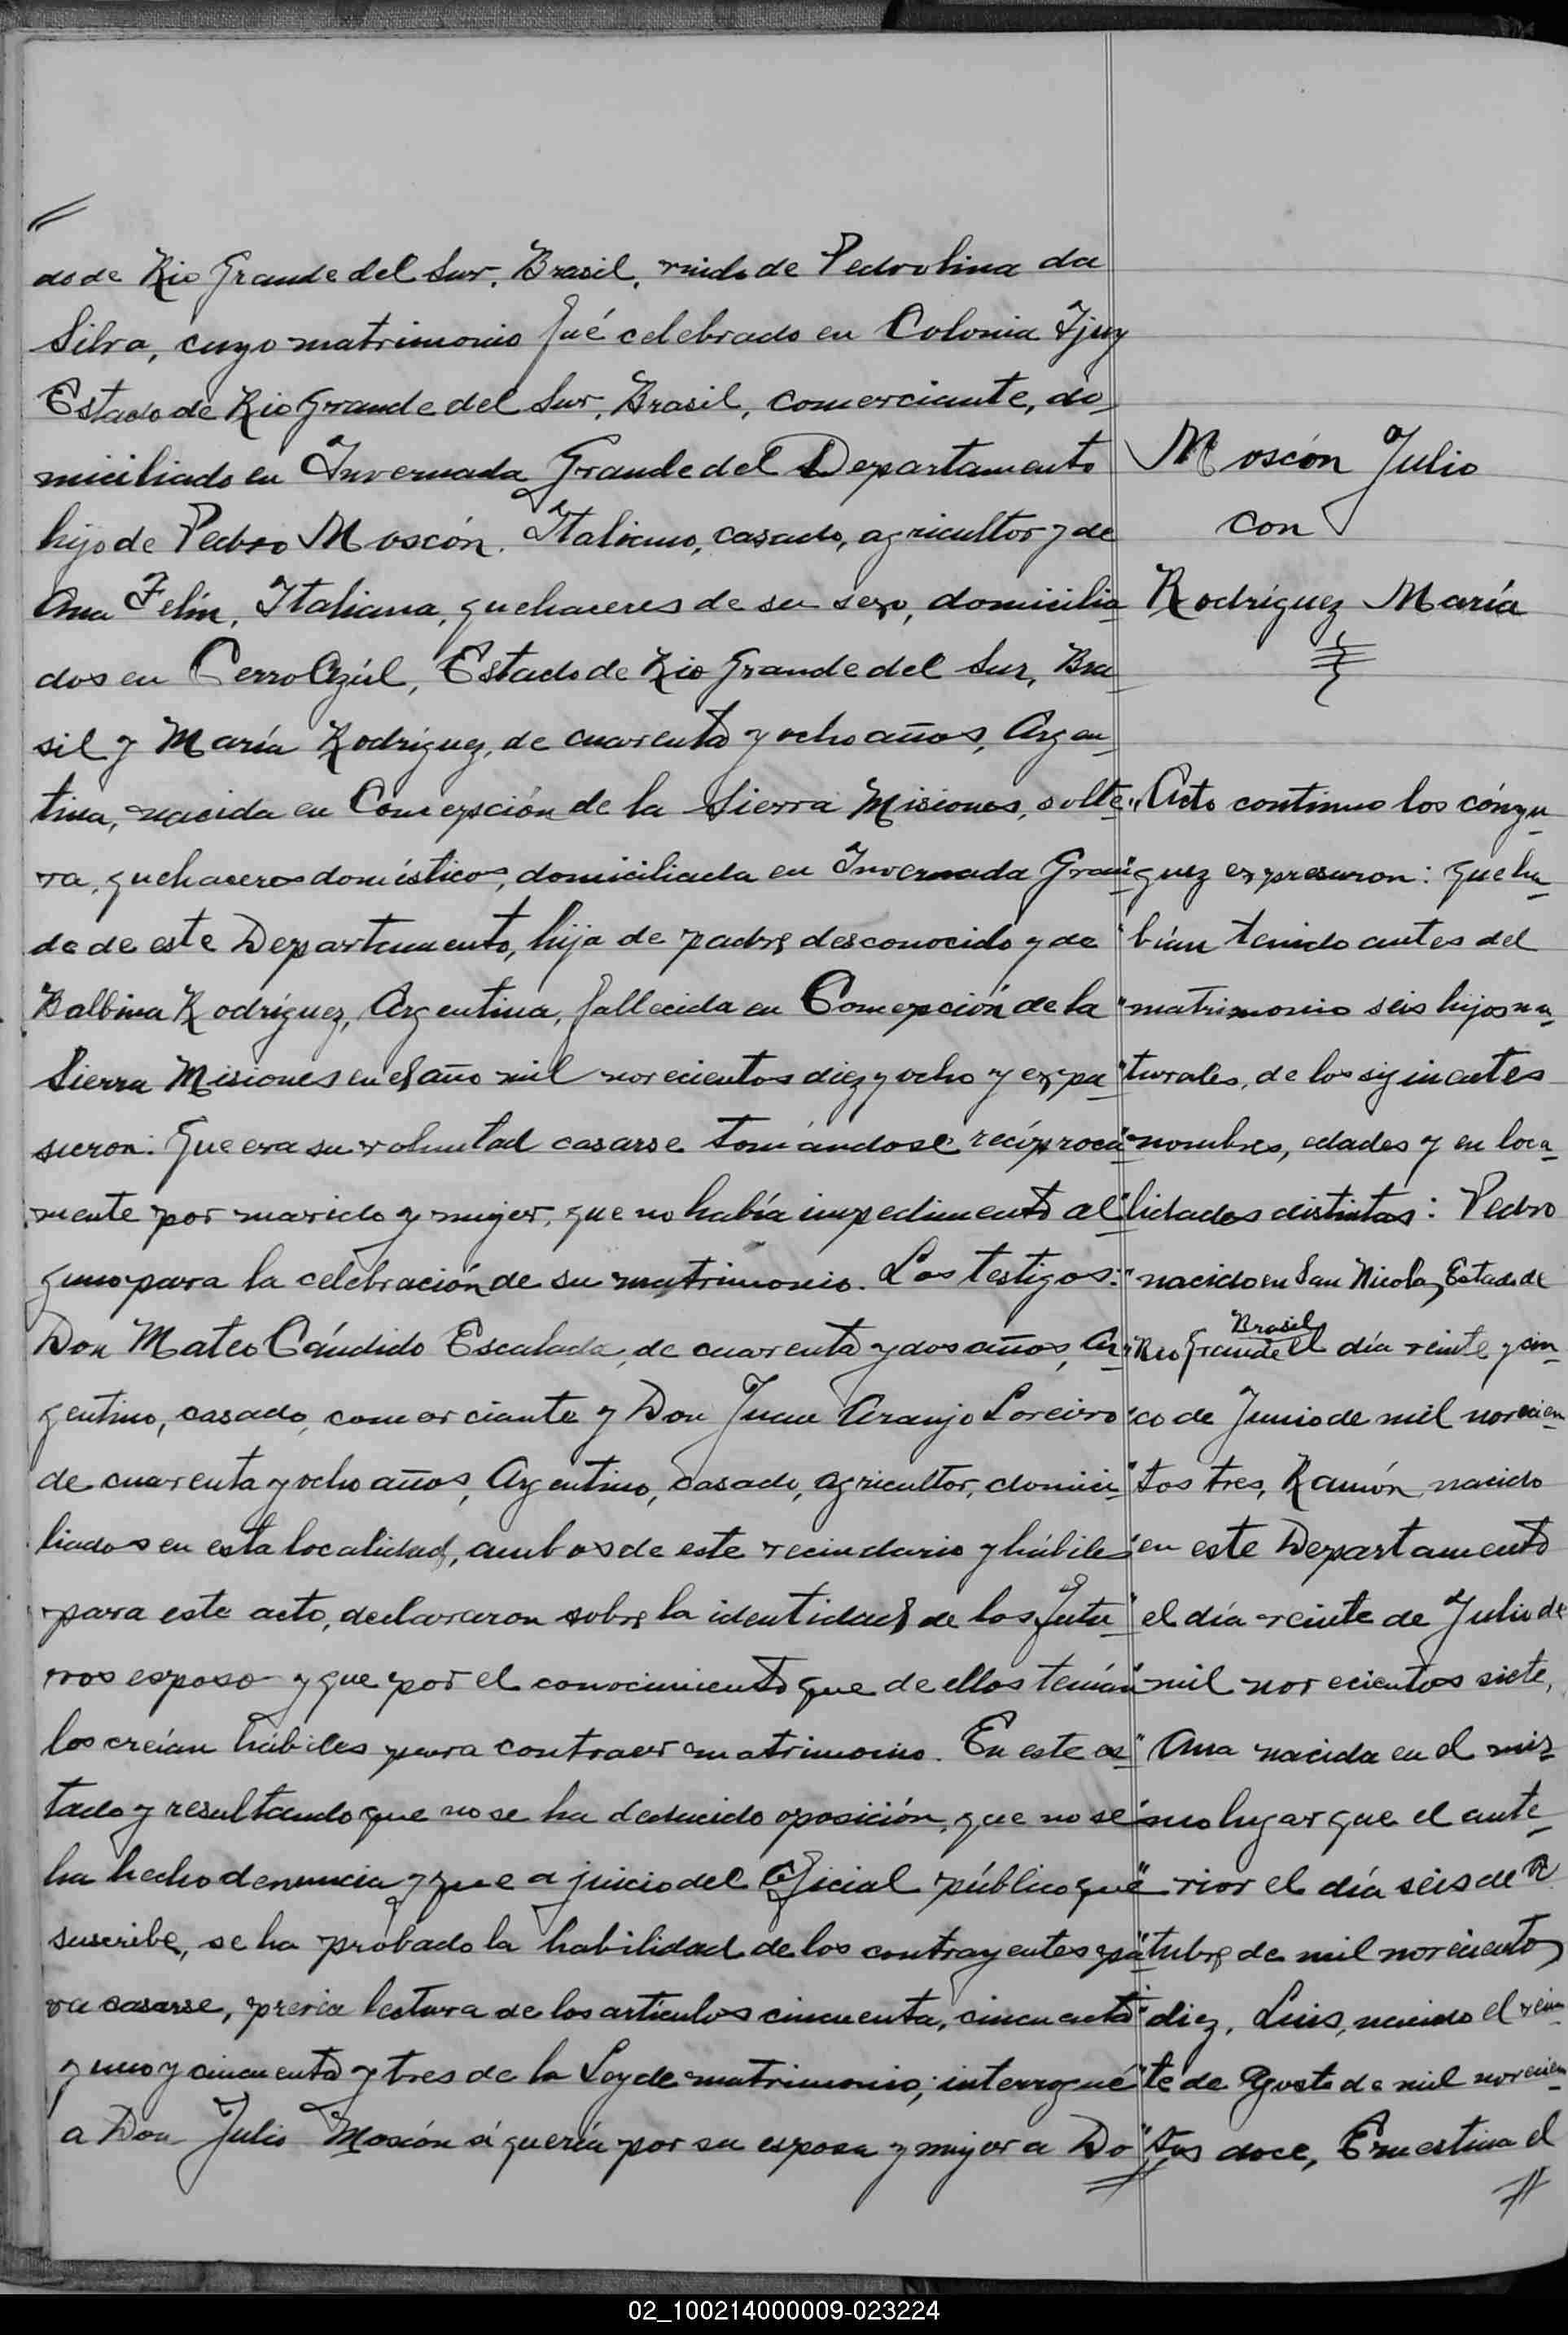 do de Rio Grande del Sur, Brasil, viudo de Pedrolina da
Silva, cuyo matrimonio fué celebrado en Colonia Ijuy
Estado de Rio Grande del Sur, Brasil, comerciante, do-
miciliado en Invernada Grande del Departamento
hijo de Pedro Moscón, Italiano, casado, agricultor y de
Ana Felín, Italiana, quehaceres de su sexo, domicilia-
dos en Cerro Azúl, Estado de Rio Grande del Sur, Bra-
sil y María Rodríguez, de cuarenta y ocho años, Argen-
tina, nacida en Concepción de la Sierra Misiones, solte-
ra, quehaceres domésticos, domiciliada en Invernada Gran-
de de este Departamento, hija de padre desconocido y de
Balbina Rodríguez, Argentina, fallecida en Concepción de la
Sierra Misiones en el año mil novecientos diez y ocho y expu-
sieron: Que era su voluntad casarse tomándose recíproca-
mente por marido y mujer, que no había impedimento al-
guno para la celebración de su matrimonio. Los testigos:
Don Mateo Cándido Escalada, de cuarenta y dos años, Ar-
gentino, casado, comerciante y Don Juan Araujo Loreiro
de cuarenta y ocho años, Argentino, casado, agricultor, domici-
liados en esta localidad, ambos de este vecindario y hábiles
para este acto, declararon sobre la identidad de los futu-
ros esposo y que por el conocimiento que de ellos tenían
los creían hábiles para contraer matrimonio. En este es-
tado y resultando que no se ha deducido oposición, que no se
ha hecho denuncia y que a juicio del Oficial público que
suscribe, se ha probado la habilidad de los contrayentes pa-
ra casarse, previa lectura de los artículos cincuenta, cincuenta
y uno y cincuenta y tres de la Ley de matrimonio; interrogué
a Don Julio Moscón si quería por su esposa y mujer a Do
Moscón Julio
con
Rodríguez María
"Acto continuo los cónyu-
"guez expresaron: que ha-
"bían tenido antes del
"matrimonio seis hijos na-
"turales, de los siguientes
"nombres, edades y en loca-
"lidades distintas: Pedro
"nacido en San Nicolas, Estado de
Brasil
"Rio Grande el día veinte y cin-
"co de Junio de mil novecien-
"tos tres, Ramón, nacido
"en este Departamento
"el día veinte de Julio de
"mil novecientos siete,
"Ana nacida en el mis-
"mo lugar que el ante-
"rior el día seis de Oc
"tubre de mil novecientos
"diez, Luis, nacido el vein
"te de Agosto de mil novecien-
"tos doce, Ernestina el